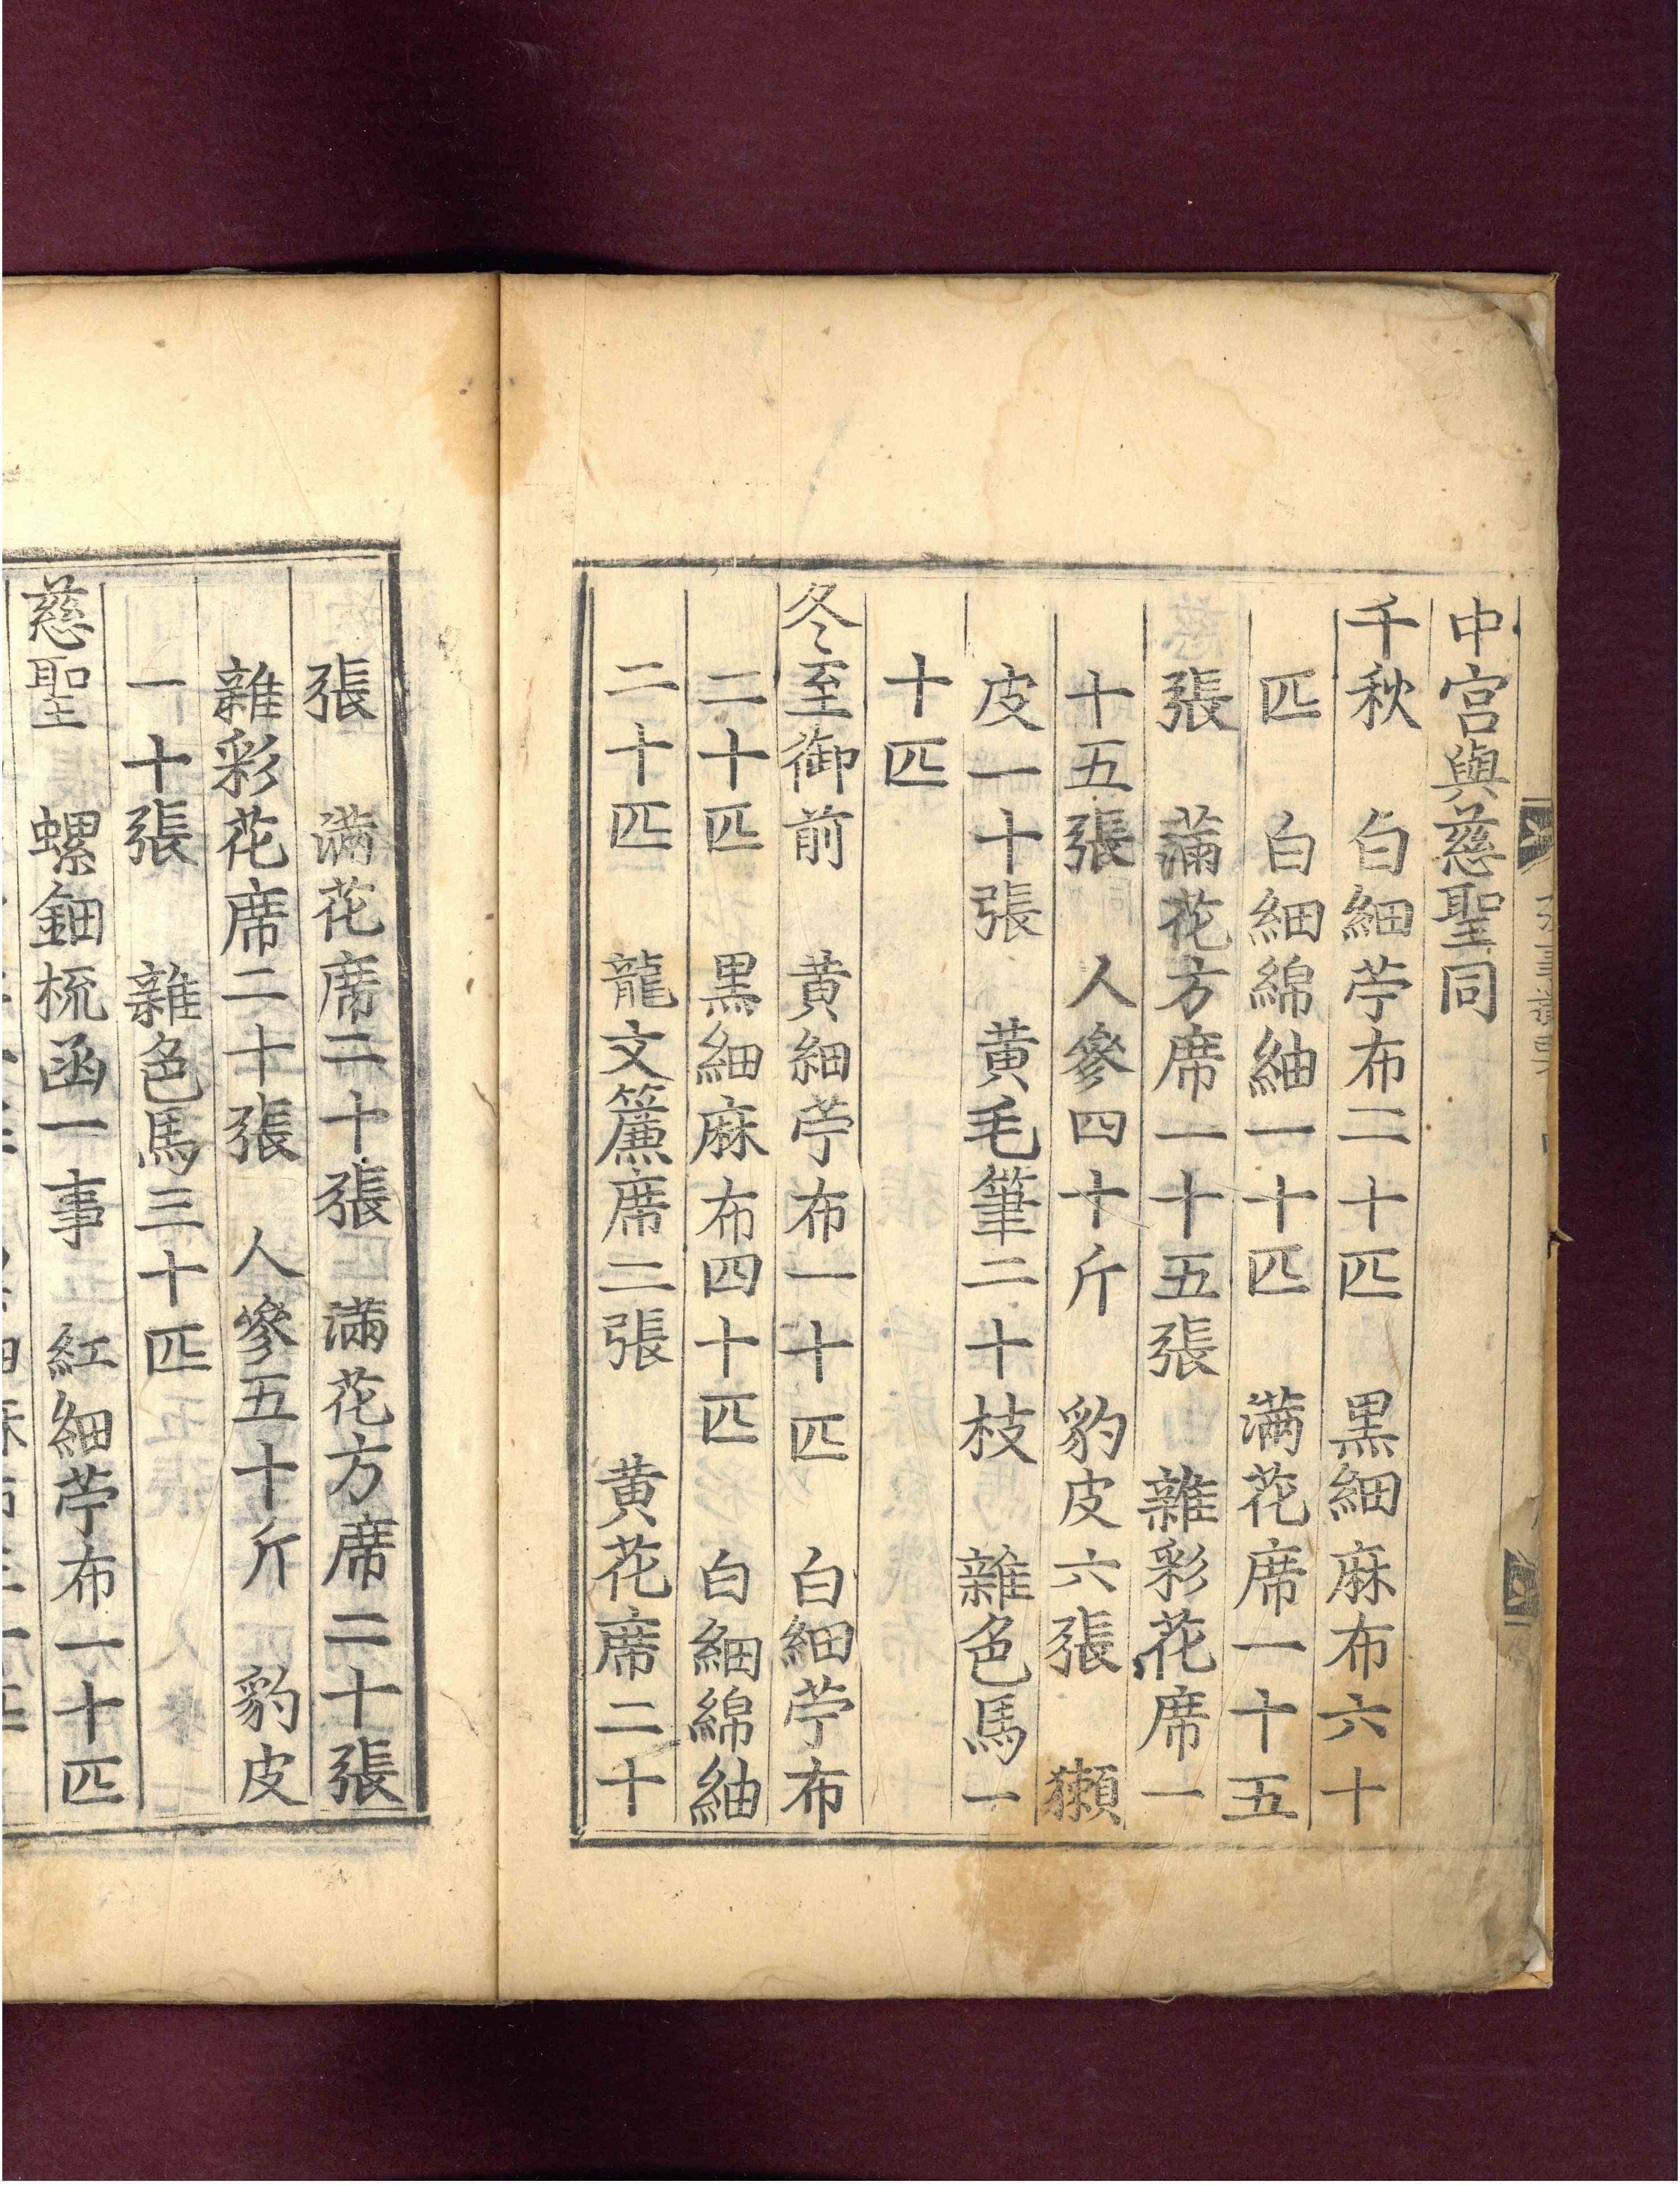 中宮與慈聖同
千秋 白細苧布二十匹 黒細麻布六十
匹 白細綿紬一十匹 滿花席一十五
張 滿花方席一十五張 雜彩花席一
十五張 人參四十斤 豹皮六張 獺
皮一十張 黃毛筆二十枝 雜色馬一
十匹
冬至御前 黃細苧布一十匹 白細苧布
二十匹 黒細麻布四十匹 白細綿紬
二十匹 龍文簾席二張 黃花席二十
張 滿花席二十張 滿花方席二十張
雜彩花席二十張 人參五十斤 豹皮
一十張 雜色馬三十匹
慈聖 螺鈿梳函一事 紅細苧布一十匹